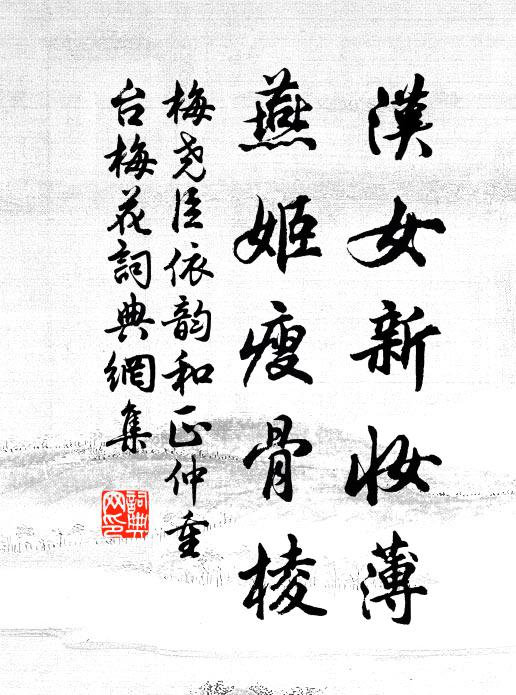 漢女新妆薄
燕姬瘦骨棱
梅尧臣依韵和正仲重
台梅花詞典網集
詞典
网印